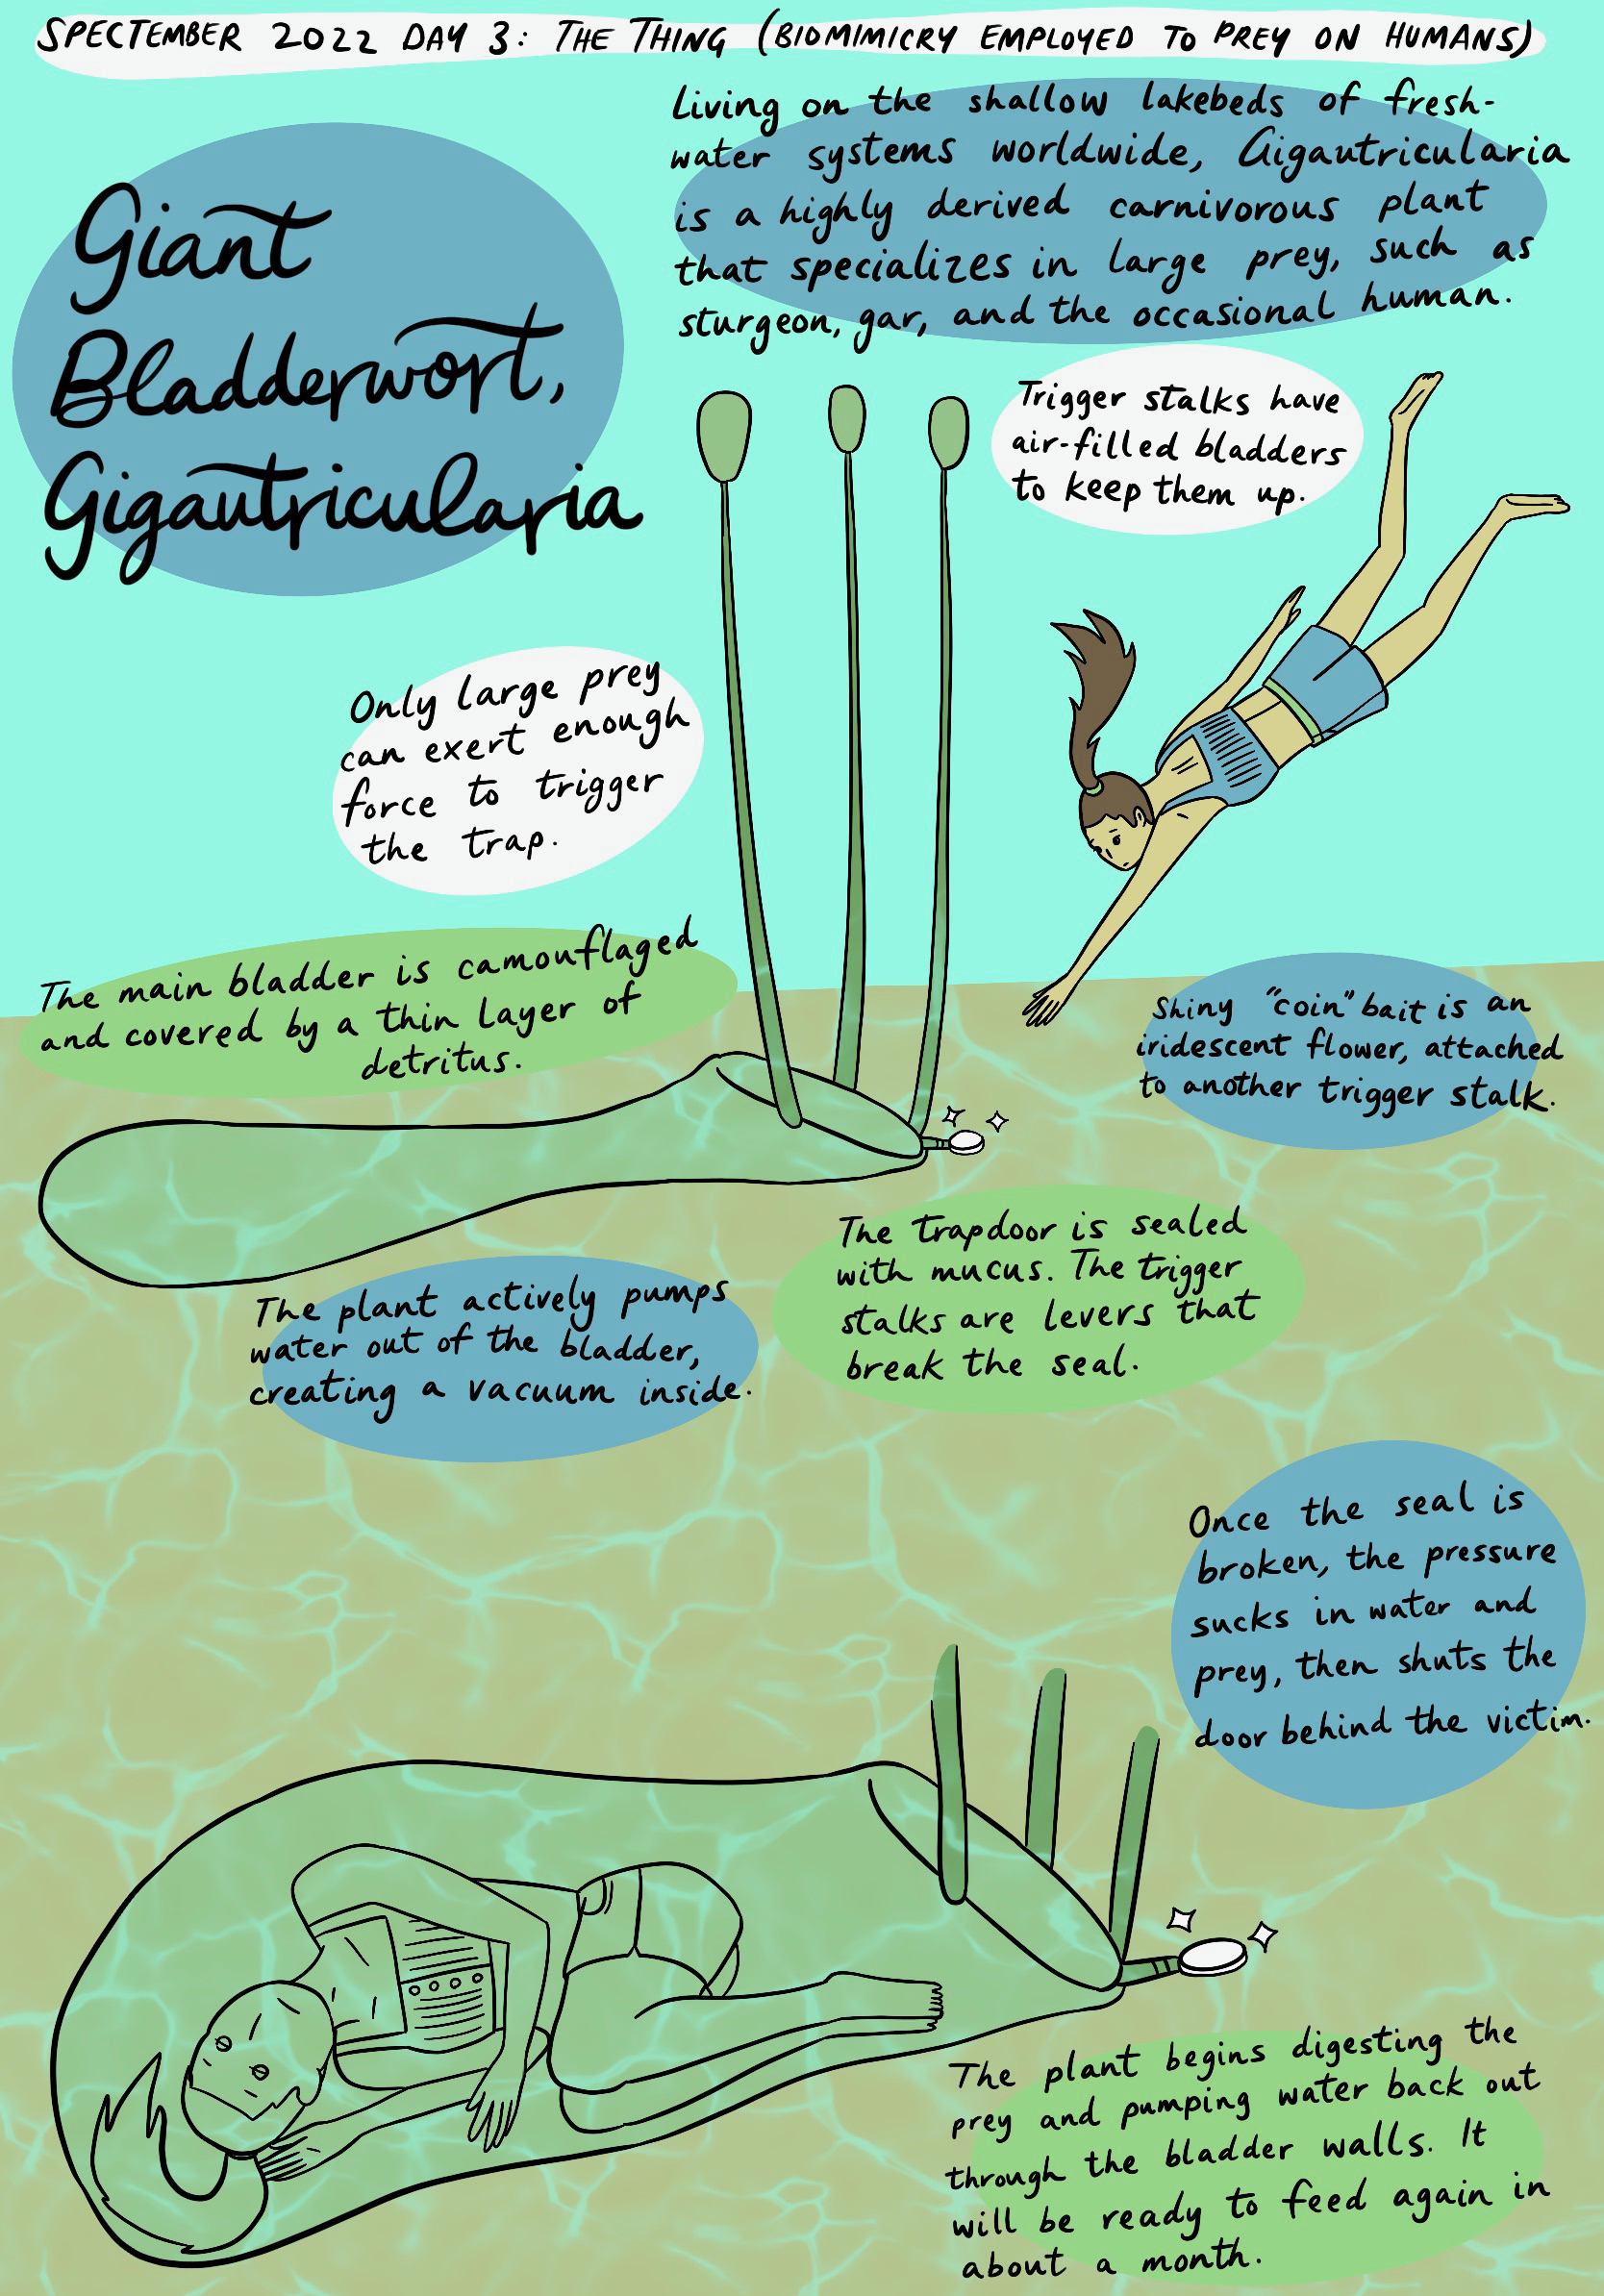 SPECTEMBER 2022 DAY 3: THE THING (BIOMIMICRY EMPLOYED TO PREY ON HUMANS)
Giant
Bladderwort,
Gigautricularia
Living on the shallow lakebeds of fresh-
water systems worldwide, Gigautricularia
is a highly derived carnivorous plant
that specializes in large prey, such as
sturgeon, gar, and the occasional human.
Trigger stalks have
air-filled bladders
to keep them up.
Only large prey
can exert enough
force to trigger
the trap.
The main bladder is camouflaged
and covered by a thin layer of
detritus.
Shiny "coin" bait is an
iridescent flower, attached
to another trigger stalk.
The trapdoor is sealed
with mucus. The trigger
stalks are levers that
break the seal.
The plant actively pumps
water out of the bladder,
creating a vacuum inside.
Once the seal is
broken, the pressure
sucks in water and
prey, then shuts the
door behind the victim.
The plant begins digesting the
prey and pumping water back out
through the bladder walls. It
will be ready to feed again in
about a month.